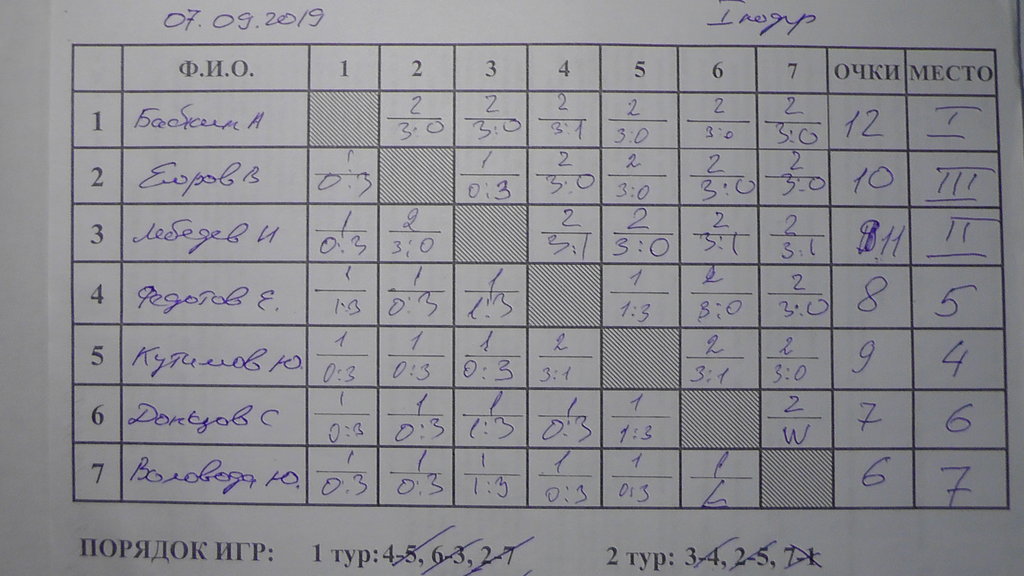 07.09.2019 I подгр
Ф.И.О. 1 2 3 4 5 6 7 ОЧКИ МЕСТО
1 Баскин А 2 3:0 2 3:0 2 3:1 2 3:0 2 3:0 2 3:0 12 I
2 Егоров В 1 0:3 1 0:3 2 3:0 2 3:0 2 3:0 2 3:0 10 III
3 Лебедев И 1 0:3 2 3:0 2 3:1 2 3:0 2 3:1 2 3:1 11 II
4 Федотов Е. 1 1:3 1 0:3 1 1:3 1 1:3 2 3:0 2 3:0 8 5
5 Кутимов Ю. 1 0:3 1 0:3 1 0:3 2 3:1 2 3:1 2 3:0 9 4
6 Донцов С 1 0:3 1 0:3 1 1:3 1 0:3 1 1:3 2 W 7 6
7 Воловода Ю. 1 0:3 1 0:3 1 1:3 1 0:3 1 0:3 1 L 6 7
ПОРЯДОК ИГР: 1 тур: 4-5, 6-3, 2-7 2 тур: 3-4, 2-5, 7-1